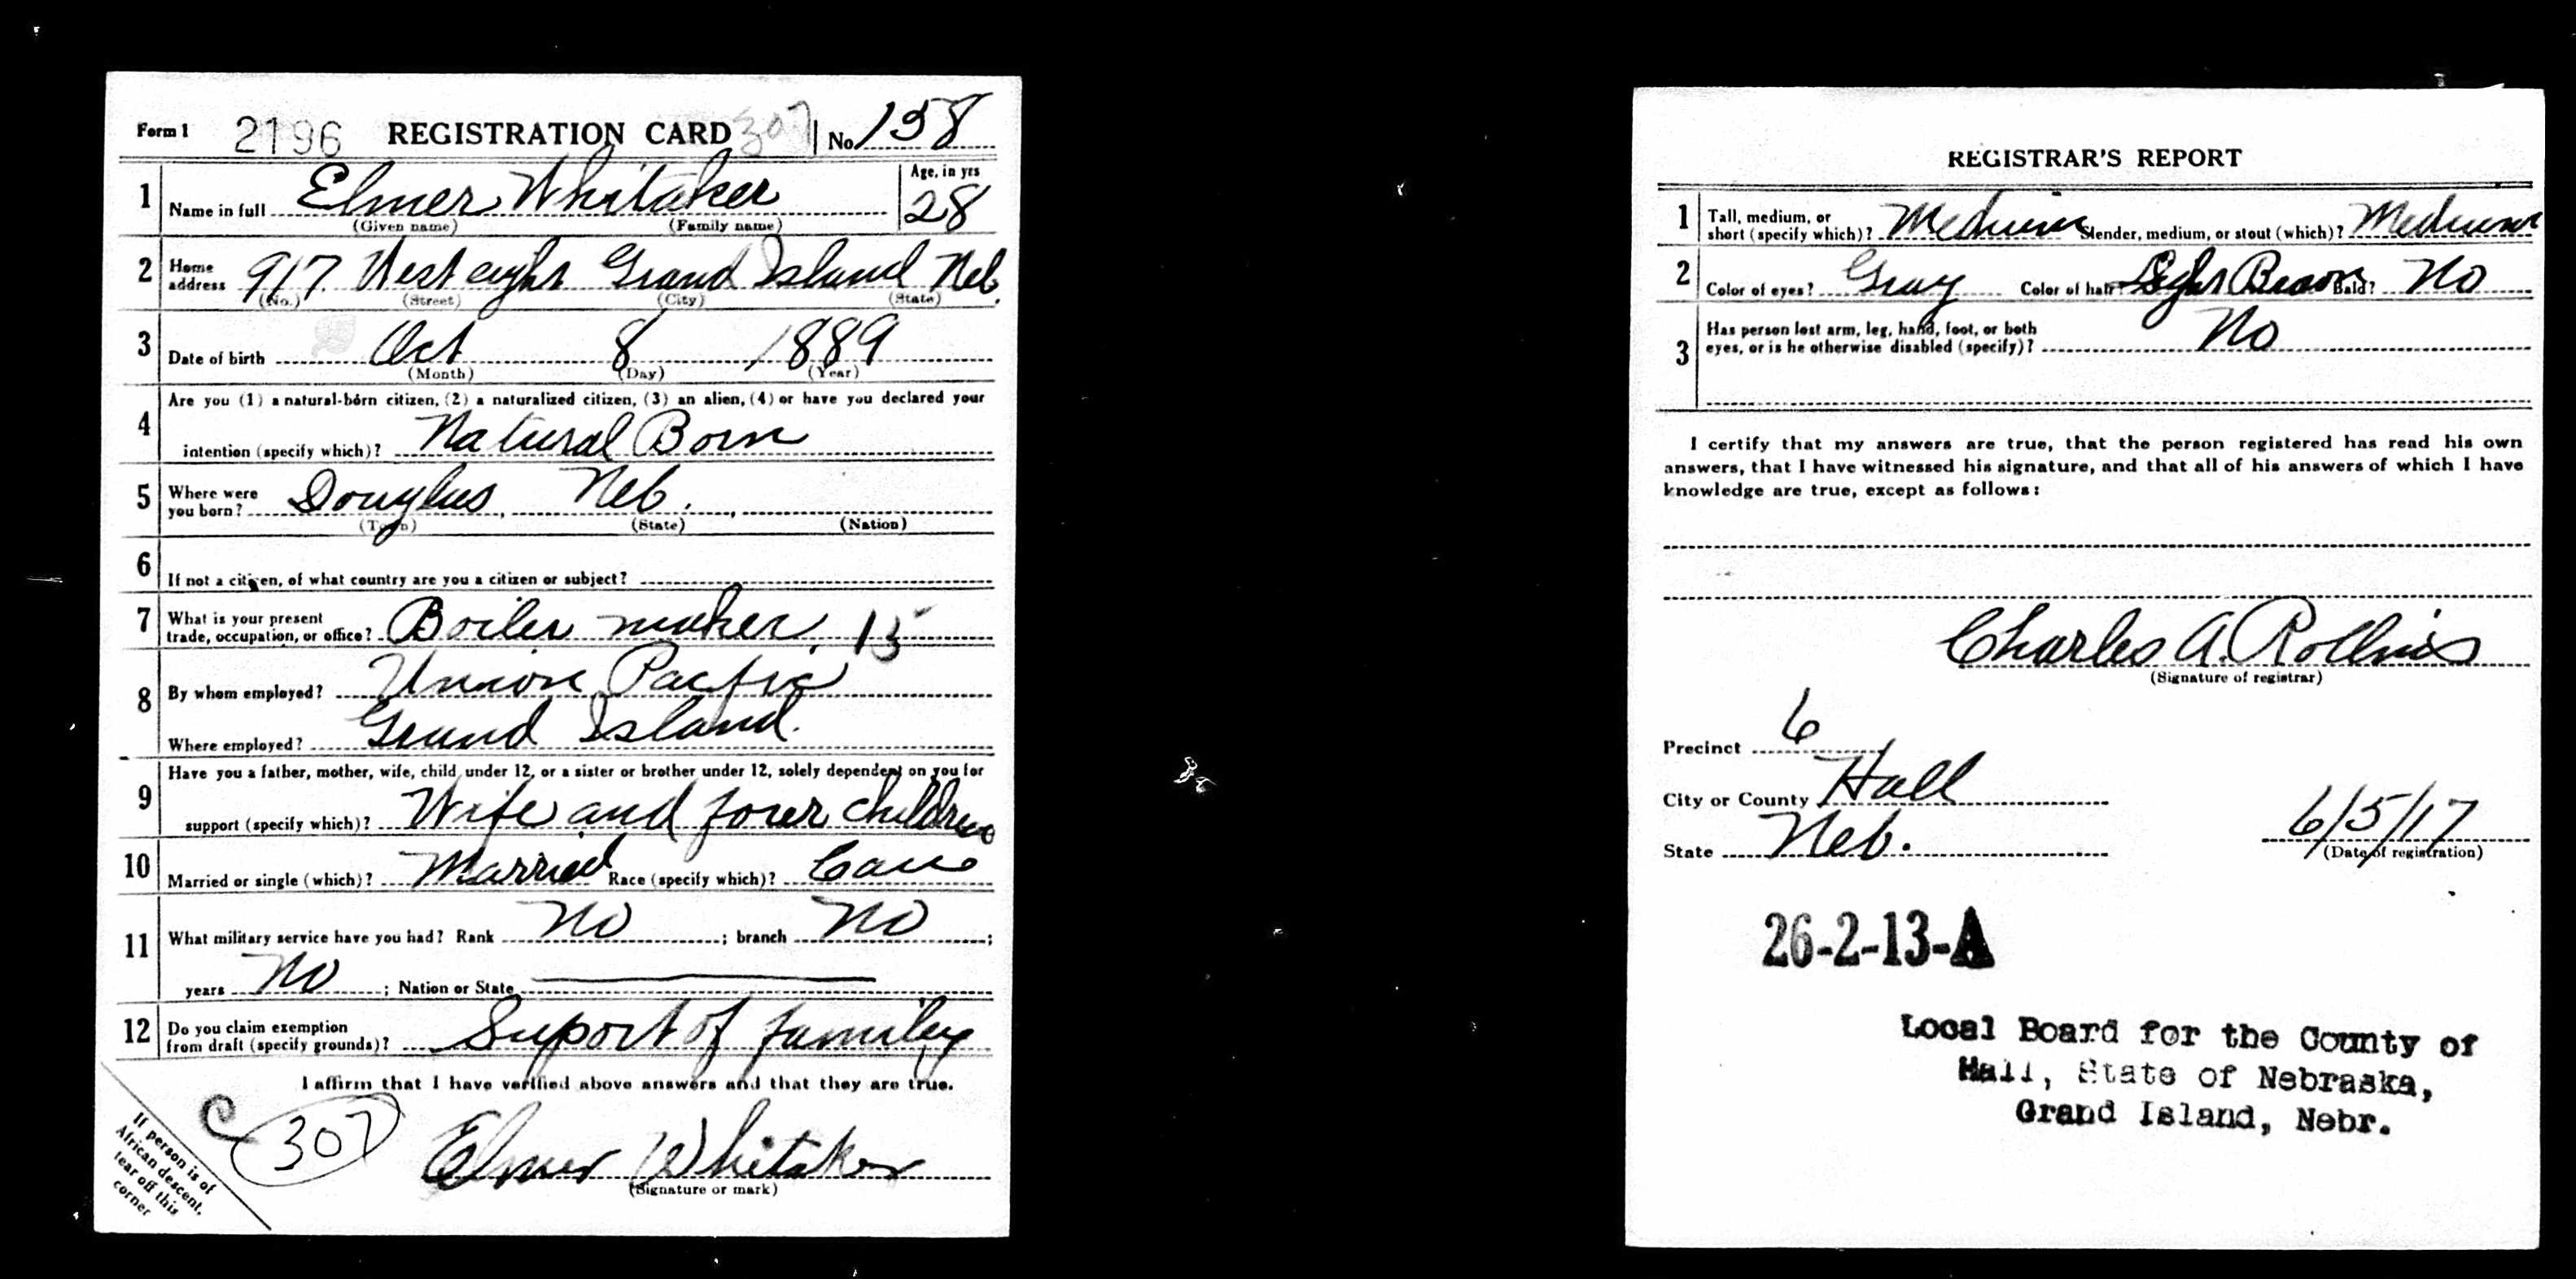 Form 1 2196 REGISTRATION CARD 307 No 158
1 Name in full Elmer Whitaker Age, in yrs 28
(Given name) (Family name)
2 Home address 917 West eight Grand Island Neb.
(No.) (Street) (City) (State)
3 Date of birth Oct 8 1889
(Month) (Day) (Year)
4 Are you (1) a natural-born citizen, (2) a naturalized citizen, (3) an alien, (4) or have you declared your
intention (specify which)? Natural Born
5 Where were you born? Douglus, Neb.,
(Town) (State) (Nation)
6 If not a citizen, of what country are you a citizen or subject?
7 What is your present
trade, occupation, or office? Boiler maker, 15
8 By whom employed? Union Pacific
Where employed? Grand Island.
9 Have you a father, mother, wife, child under 12, or a sister or brother under 12, solely dependent on you for
support (specify which)? Wife and four children
10 Married or single (which)? Married Race (specify which)? Cau
11 What military service have you had? Rank No ; branch No ;
years No ; Nation or State
12 Do you claim exemption
from draft (specify grounds)? Suport of family
I affirm that I have verified above answers and that they are true.
C 307
Elmer Whitaker
(Signature or mark)
If person is of
African descent,
tear off this
corner
REGISTRAR'S REPORT
1 Tall, medium, or
short (specify which)? Medium Slender, medium, or stout (which)? Medium
2 Color of eyes? Gray Color of hair? Light Brown Bald? No
3 Has person lost arm, leg, hand, foot, or both
eyes, or is he otherwise disabled (specify)? No
I certify that my answers are true, that the person registered has read his own
answers, that I have witnessed his signature, and that all of his answers of which I have
knowledge are true, except as follows:
Charles A. Rollins
(Signature of registrar)
Precinct 6
City or County Hall
State Neb. 6/5/17
(Date of registration)
26-2-13-A
Local Board for the County of
Hall, State of Nebraska,
Grand Island, Nebr.